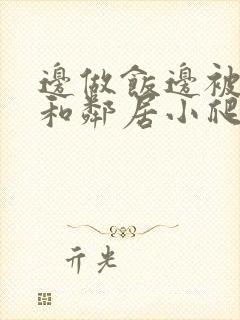 邊做飯邊被
和鄰居小爬
亓光